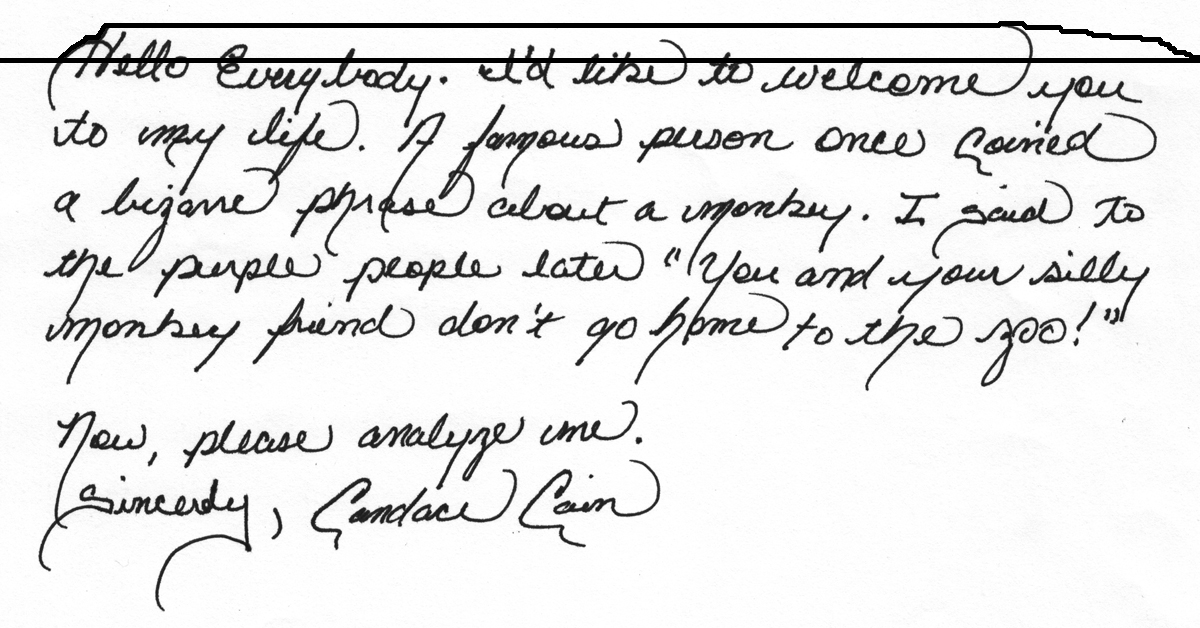 Hello Everybody. I'd like to welcome you
to my life. A famous person once coined
a bizarre phrase about a monkey. I said to
the purple people later "You and your silly
monkey friend don't go home to the zoo!"
Now, please analyze me.
Sincerely, Candace Cain